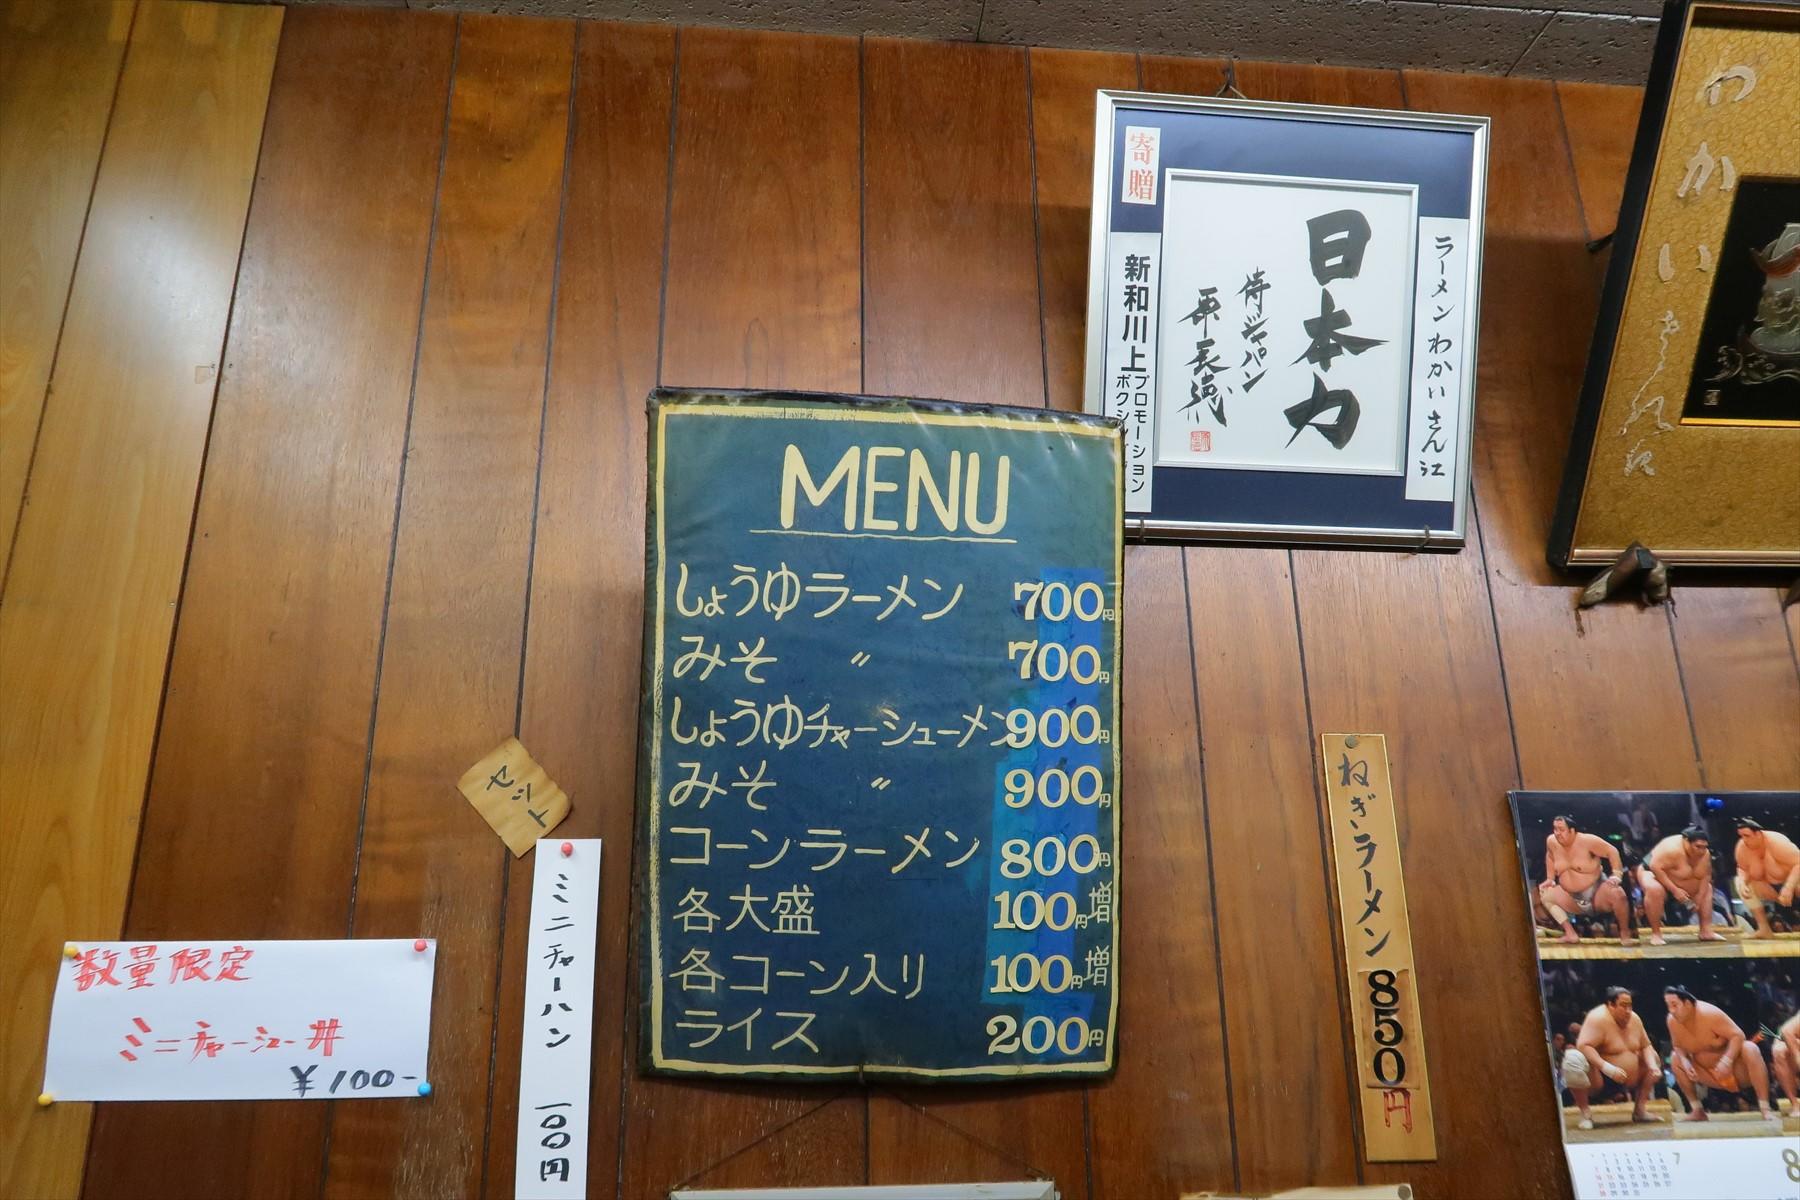 MENU
しょうゆラーメン 700円
みそ 〃 700円
しょうゆチャーシューメン 900円
みそ 〃 900円
コーンラーメン 800円
各大盛 100円増
各コーン入り 100円増
ライス 200円
セット
ミニチャーハン 一〇〇円
数量限定
ミニチャーシュー丼
¥100-
ねぎラーメン 850円
寄贈
新和川上
プロモーション
日本力
侍ジャパン
ラーメンわかいさん江
わかいさん江
8